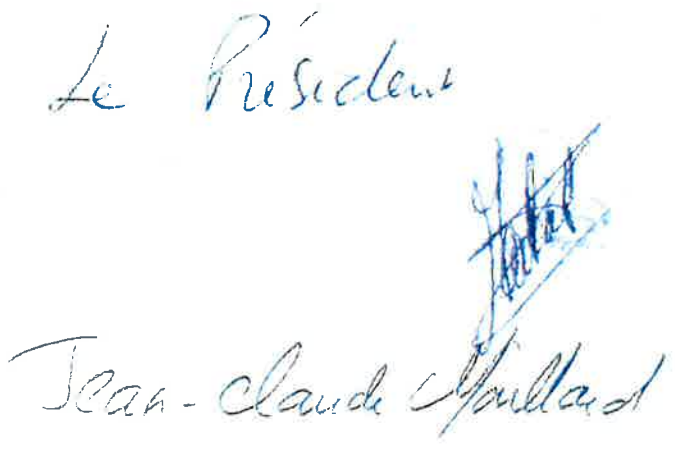 Le Président
Jean-Claude Maillard